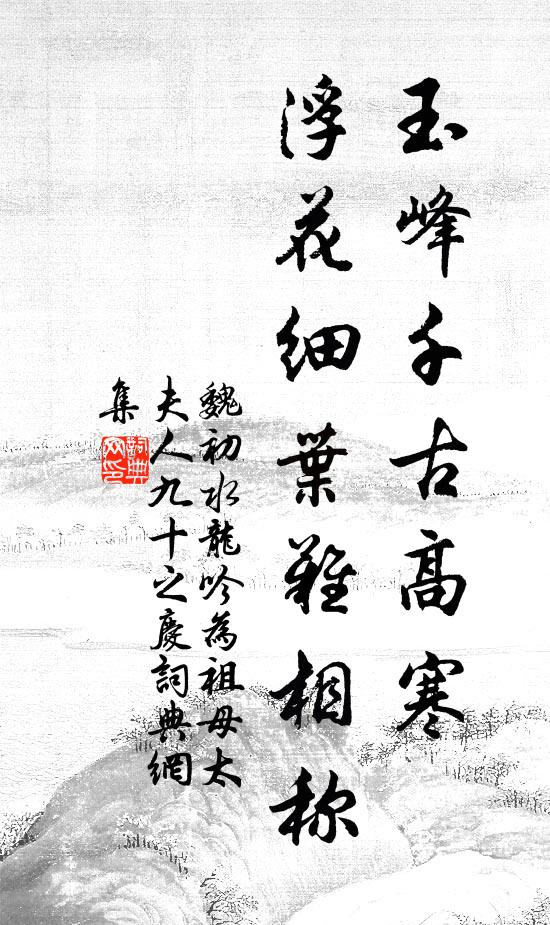 玉峰千古高寒
浮花細葉難相称
魏初水龍吟為祖母太
夫人九十之慶詞典網
集
詞典網印